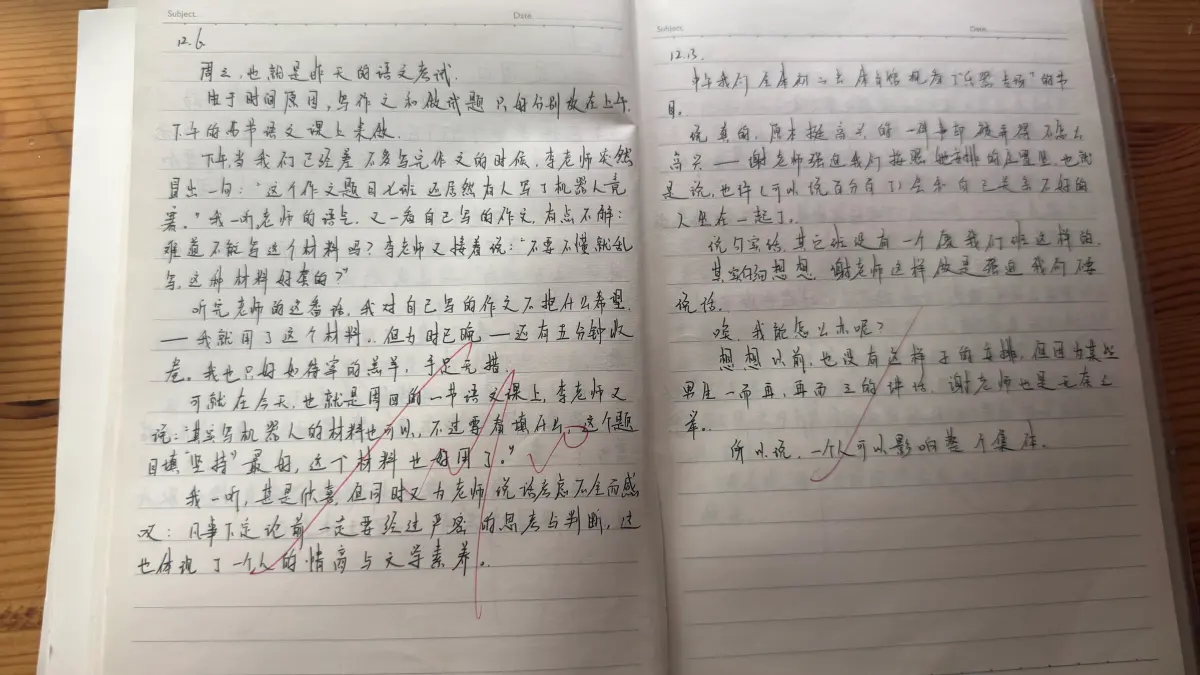 Subject.
Date.
12.6
周三，也就是昨天的语文考试.
由于时间原因，写作文和做试题只好分别放在上午.
下午的两节语文课上来做.
下午当我们已经差不多写完作文的时候，李老师突然
冒出一句："这个作文题目七班还居然有人写了机器人竞
赛。"我一听老师的语气，又一看自己写的作文，有点不解：
难道不能写这个材料吗？李老师又接着说："不要不懂就乱
写，这种材料好套的？"
听完老师的这番话，我对自己写的作文不抱什么希望.
——我就用了这个材料.. 但为时已晚——还有五分钟收
卷。我也只好如待宰的羔羊，手足无措.
可就在今天，也就是周四的一节语文课上，李老师又
说："其实写机器人的材料也可以，不过要看填什么，这个题
目填"坚持"最好，这个材料也好用了。"
我一听，甚是欣喜，但同时又为老师说话考虑不全而感
叹：凡事下定论前一定要经过严密的思考与判断，这
也体现了一个人的情商与文学素养。
Subject.
Date.
12.13.
中午我们全本初二去体育馆观看了"乐器专场"的节
目.
说真的，原本挺高兴的一件事却被弄得不怎么
高兴——谢老师强迫我们按照她安排的位置坐，也就
是说，也许（可以说百分百了）会和自己关系不好的
人坐在一起了。
说句实话，其它班没有一个像我们班这样的.
其实仔细想想，谢老师这样做是强迫我们不要
说话.
唉，我能怎么办呢？
想想以前，也没有这样子的安排，但因为某些
男生一而再，再而三的讲话，谢老师也是无奈之
举。
所以说，一个人可以影响整个集体.